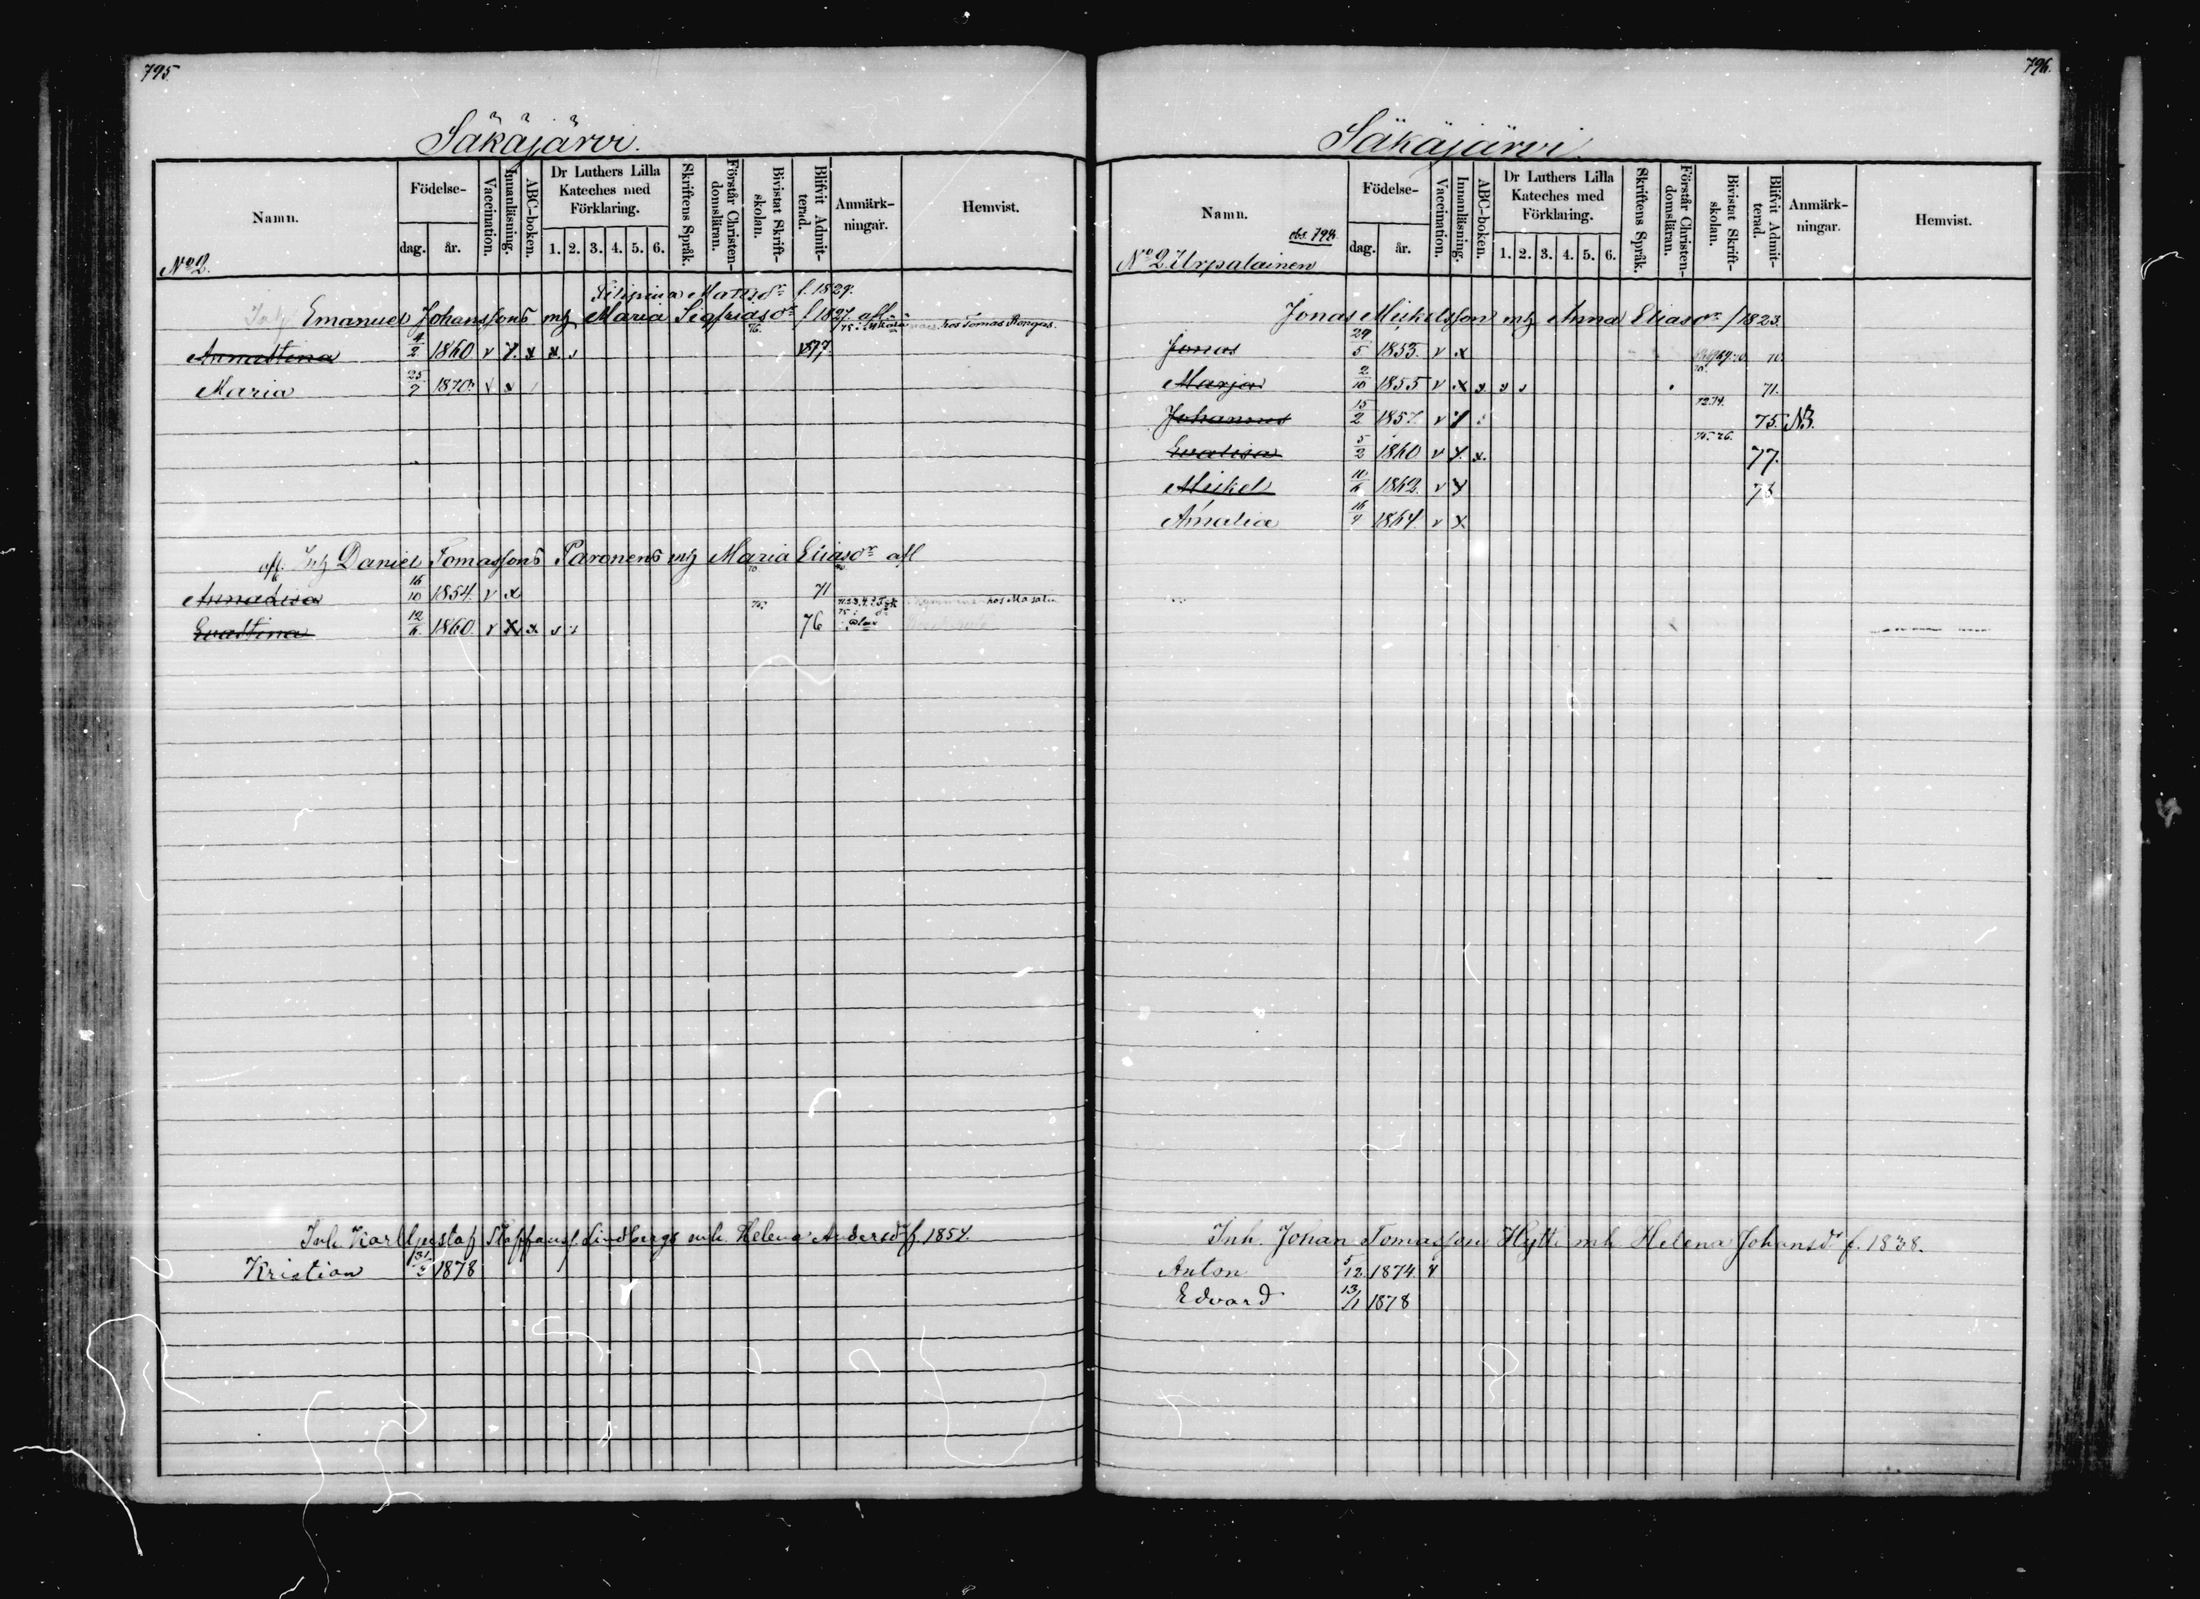 795
Säkäjärvi.
Namn.
Födelse-
dag. år.
Vaccination.
Innanläsning.
ABC-boken.
Dr Luthers Lilla
Kateches med
Förklaring.
1. 2. 3. 4. 5. 6.
Skriftens Språk.
Förstår Christen-
domsläran.
Bivistat Skrift-
skolan.
Blifvit Admit-
terad.
Anmärk-
ningar.
Hemvist.
No 2.
Matts dr f. 1829.
Emanuel Johanssons mh Maria Sigfrids dr f 1827 afl.
76. hos Tomas Rongas.
Annastina 4/2 1860 v x x x 1877.
Maria 25/7 1870. v x
afl. Daniel Tomassons Paronens mh Maria Elias dr afl
Annalisa 16/10 1854. v x 71
Evastina 12/6 1860. v x x 76
Inh. Karl Gustaf Staffanss. Lindbergs mh. Helena Andersdr f. 1854.
Kristian 31/2 1878
796.
Säkäjärvi.
Namn.
obs. 794.
Födelse-
dag. år.
Vaccination.
Innanläsning.
ABC-boken.
Dr Luthers Lilla
Kateches med
Förklaring.
1. 2. 3. 4. 5. 6.
Skriftens Språk.
Förstår Christen-
domsläran.
Bivistat Skrift-
skolan.
Blifvit Admit-
terad.
Anmärk-
ningar.
Hemvist.
No 2. Urpalainen
Jonas Mickelsson mh Anna Elias dr f 1823.
Jonas 29/5 1853. v x
Marja 2/10 1855 v x x 71.
Johannes 15/2 1857. v 72.74. 75. NB.
Evalisa 5/2 1860 v x x. 75. 76. 77.
Mickel 10/6 1862. v
Amalia 16/7 1864. v x
Inh. Johan Tomasson Hytti mh Helena Johansdr f. 1838.
Anton 5/12 1874. v
Edvard 13/1 1878